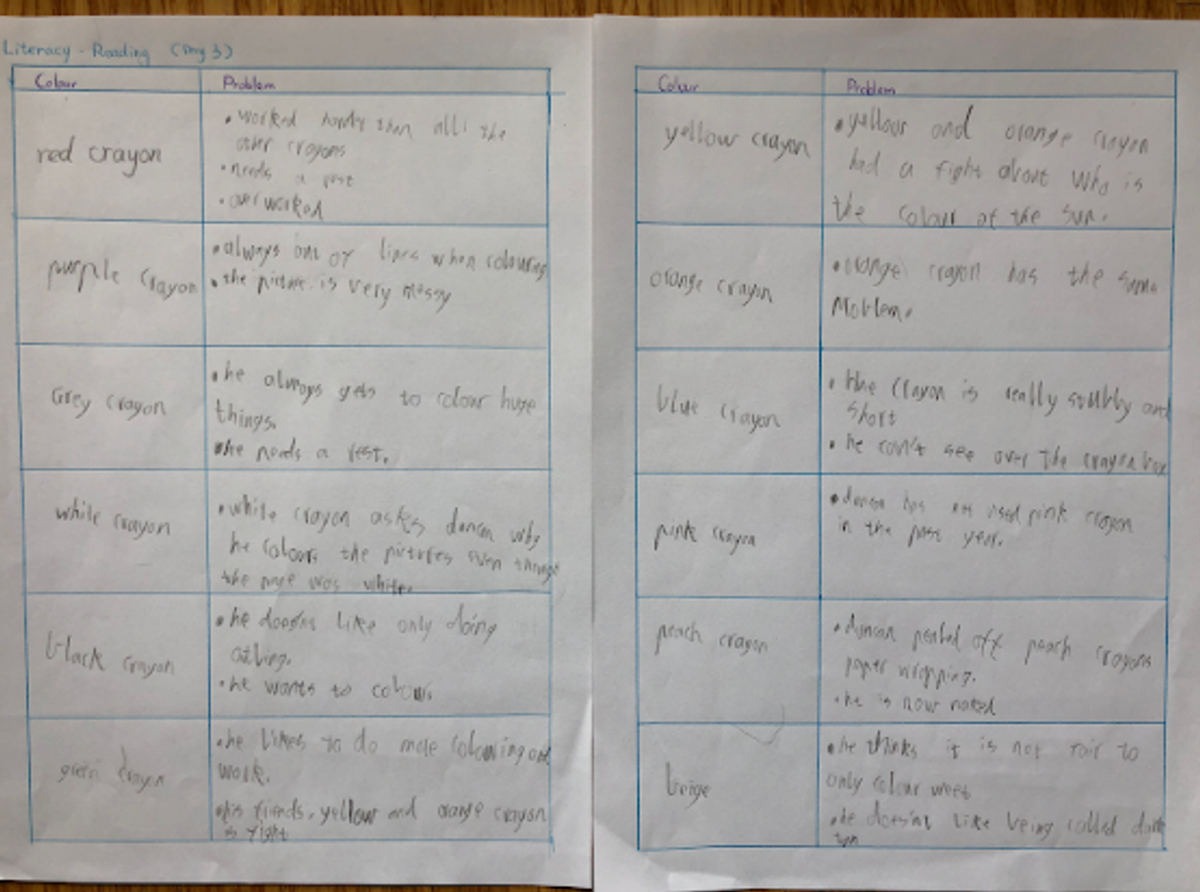 Literacy - Reading (Day 3)
Colour Problem
red crayon
• worked harder than all the
other crayons
• needs a rest
• over worked
purple crayon
• always out of lines when colouring
• the picture is very messy
Grey crayon
• he always gets to colour huge
things.
• he needs a rest.
white crayon
• white crayon asks duncan why
he colours the pictures even though
the page was white.
black crayon
• he doesns like only doing
he wants to colour.
green crayon
• he likes to do more colouring and
work.
• his friends, yellow and orange crayon
is fight
Colour Problem
yellow crayon
• yellow and orange crayon
had a fight about who is
the colour of the sun.
orange crayon
• orange crayon has the same
problem.
blue crayon
• blue crayon is really stubby and
short
• he can't see over the crayon box
pink crayon
• duncan has not used pink crayon
in the past year.
peach crayon
• duncan pealed off peach crayons
paper wrapping.
• he is now naked
beige
• he thinks it is not fair to
only colour weet
• he doesnt like being called dark
tan